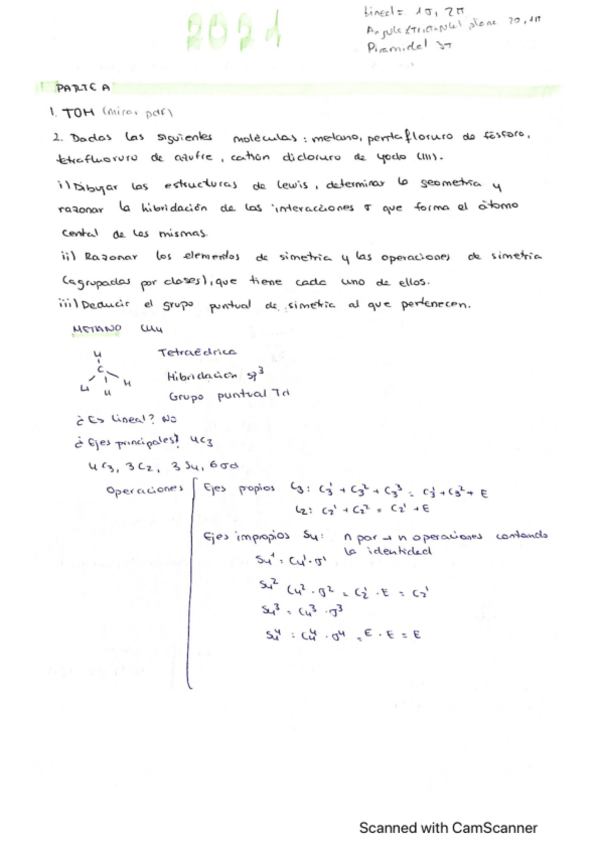 2021
lineal = 1σ, 2π
Angular/triangular plana 2σ, 1π
Piramidal 3σ
PARTE A
1. TOM (mirar pdf)
2. Dadas las siguientes moléculas: metano, pentafloruro de fósforo,
tetrafluoruro de azufre, catión dicloruro de yodo (III).
i) Dibujar las estructuras de Lewis, determinar la geometría y
razonar la hibridación de las interacciones σ que forma el átomo
central de las mismas.
ii) Razonar los elementos de simetria y las operaciones de simetria
(agrupadas por clases), que tiene cada uno de ellos.
iii) Deducir el grupo puntual de simetria al que pertenecen.
METANO CH4
H
C
H H H
Tetraédrica
Hibridación sp³
Grupo puntual Td
¿Es lineal? No
¿Ejes principales? 4C3
4C3, 3C2, 3S4, 6σd
Operaciones
Ejes propios C3: C3¹ + C3² + C3³ = C3¹ + C3² + E
C2: C2¹ + C2² = C2¹ + E
Ejes impropios S4: n par → n operaciones contando
la identidad
S4¹ = C4¹·σ¹
S4² C4²·σ² = C2¹·E = C2¹
S4³ = C4³·σ³
S4⁴ = C4⁴·σ⁴ = E·E = E
Scanned with CamScanner